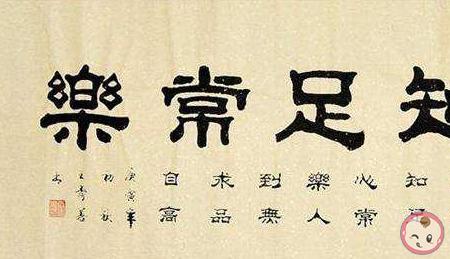 知足常樂
知足
心常
樂人
到無
求品
自高
庚寅年
初秋